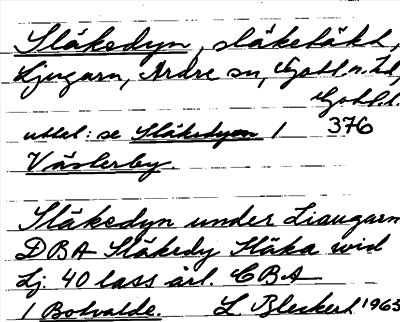 Släksdyn, släketäkt,
Ljugarn, Ardre sn, Gotl. n. hd,
Gotl. l.
uttal: se Släksdyen / 376
Västerby.
Släksdyn under Liaugarn
DBA Släksdy Släka vid
Lj. 40 lass årl. CBA
/ Botvalde. L. Bleckert 1963